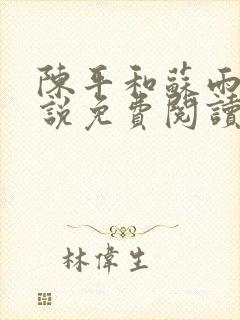 陳平和蘇雨
說免費閱讀
林偉生